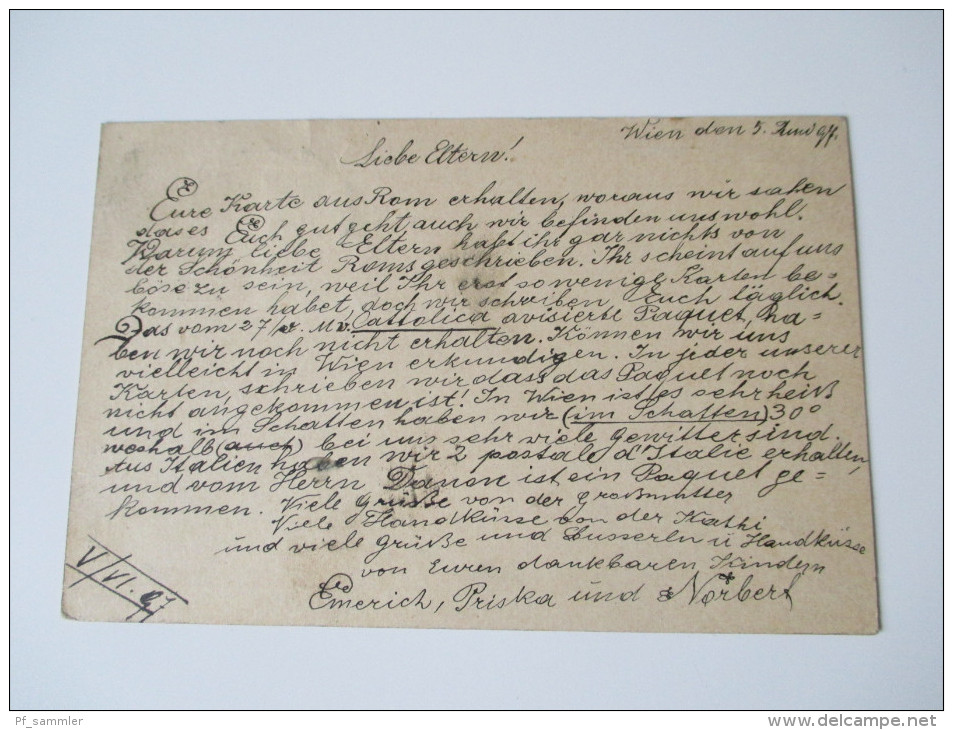 Wien den 5. Juni 97.
Liebe Eltern!
Eure Karte aus Rom erhalten, woraus wir sahen
das es Euch gut geht, auch wir befinden uns wohl.
Warum liebe Eltern habt ihr gar nichts von
der Schönheit Roms geschrieben. Ihr scheint auf uns
böse zu sein, weil Ihr erst so wenige Karten be=
kommen habet, doch wir schreiben Euch täglich.
Das vom 27/ v. M. v. Cattolica avisierte Paquet, ha=
ben wir noch nicht erhalten. Können wir uns
vielleicht in Wien erkundigen. In jeder unserer
Karten, schrieben wir dass das Paquet noch
nicht angekommen ist! In Wien ist es sehr heiß
und im Schatten haben wir (im Schatten) 30°
weshalb (auch) bei uns sehr viele Gewitter sind.
Aus Italien haben wir 2 postale d'Italie erhalten,
und vom Herrn Danon ist ein Paquet ge=
kommen. Viele Grüße von der Großmutter
Viele Handküsse von der Kathi
und viele Grüße und Busserln u Handküsse
von Euren dankbaren Kindern
Emerich, Priska und Norbert
V/VI. 97
Pf_sammler
www.delcampe.net